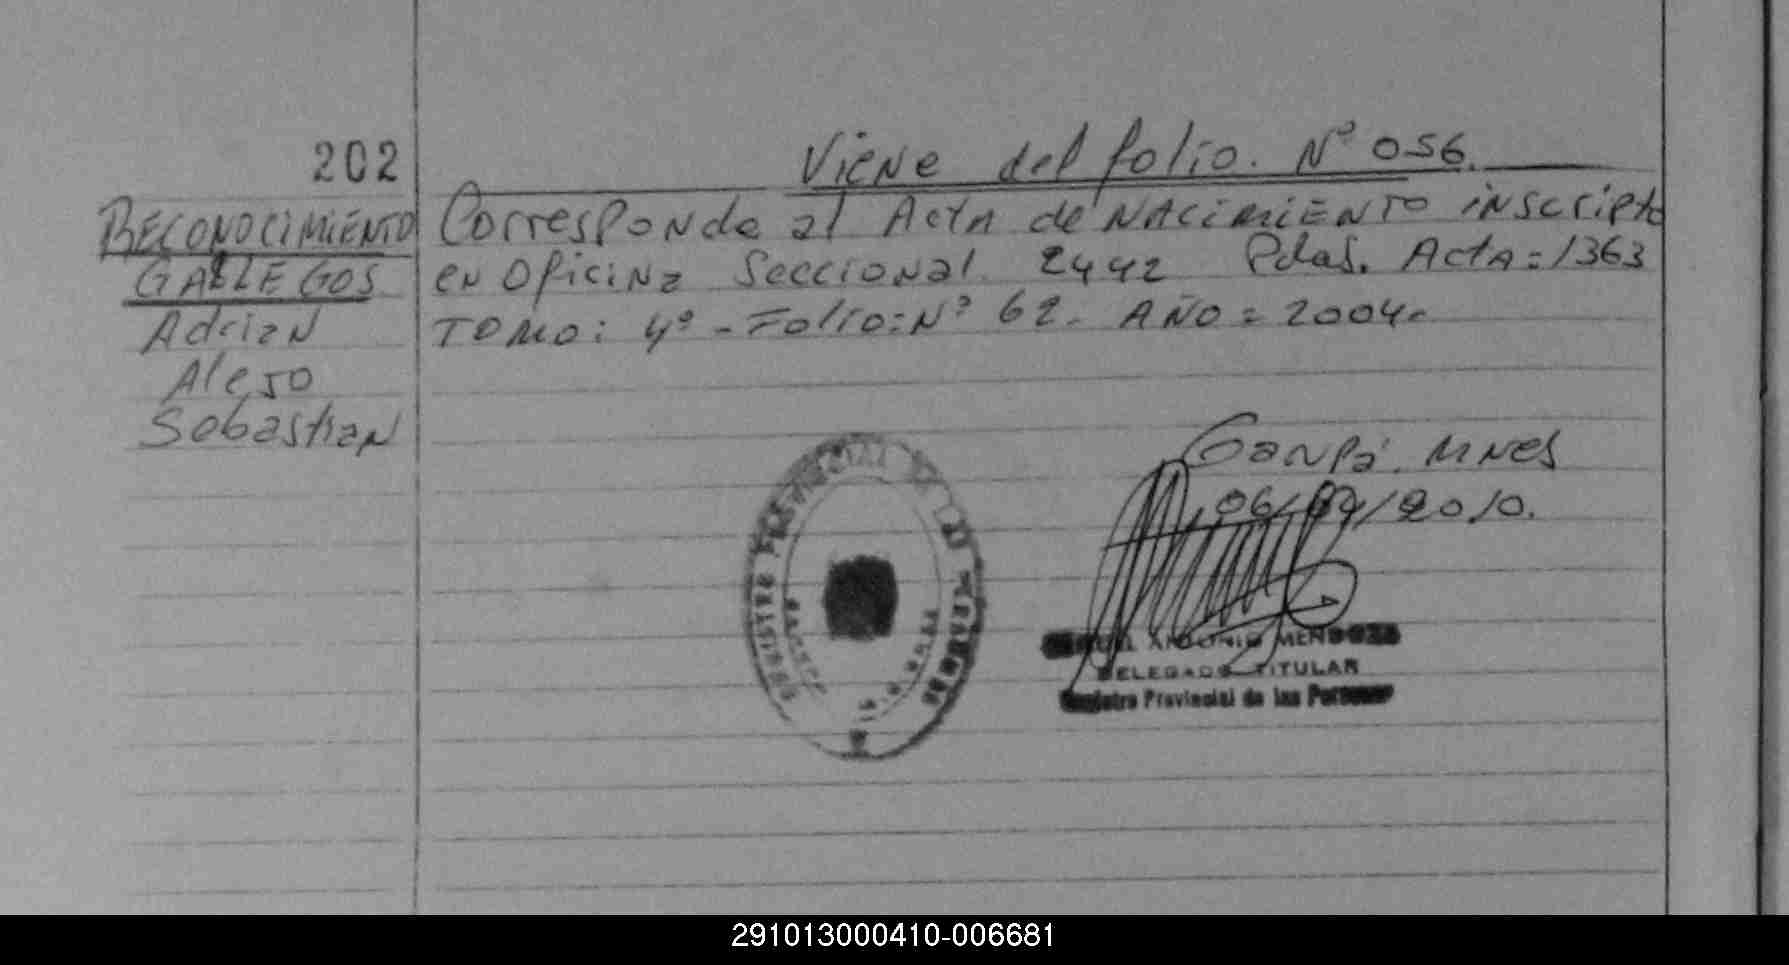 202
Viene del folio. Nº 056.
RECONOCIMIENTO
GALLEGOS
Adrian
Alejo
Sebastian
Corresponde al Acta de NACIMIENTO inscripto
en Oficina Seccional 2442 Pdas. Acta = 1363
TOMO: 4º - Folio: Nº 62. AÑO = 2004.
Garupá. Mnes
06/ /2010.
ANTONIO MENDOZA
DELEGADO TITULAR
Registro Provincial de las Personas
291013000410-006681